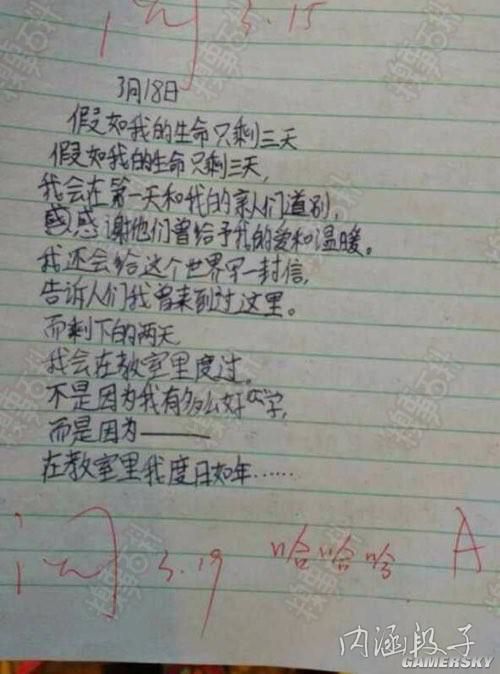 阅 3.15
3月18日
假如我的生命只剩三天
假如我的生命只剩三天,
我会在第一天和我的亲人们道别,
感感谢他们曾给予我的爱和温暖。
我还会给这个世界写一封信,
告诉人们我曾来到过这里。
而剩下的两天
我会在教室里度过。
不是因为我有多么好学,
而是因为——
在教室里我度日如年……
阅 3.19 哈哈哈 A
内涵段子
GAMERSKY